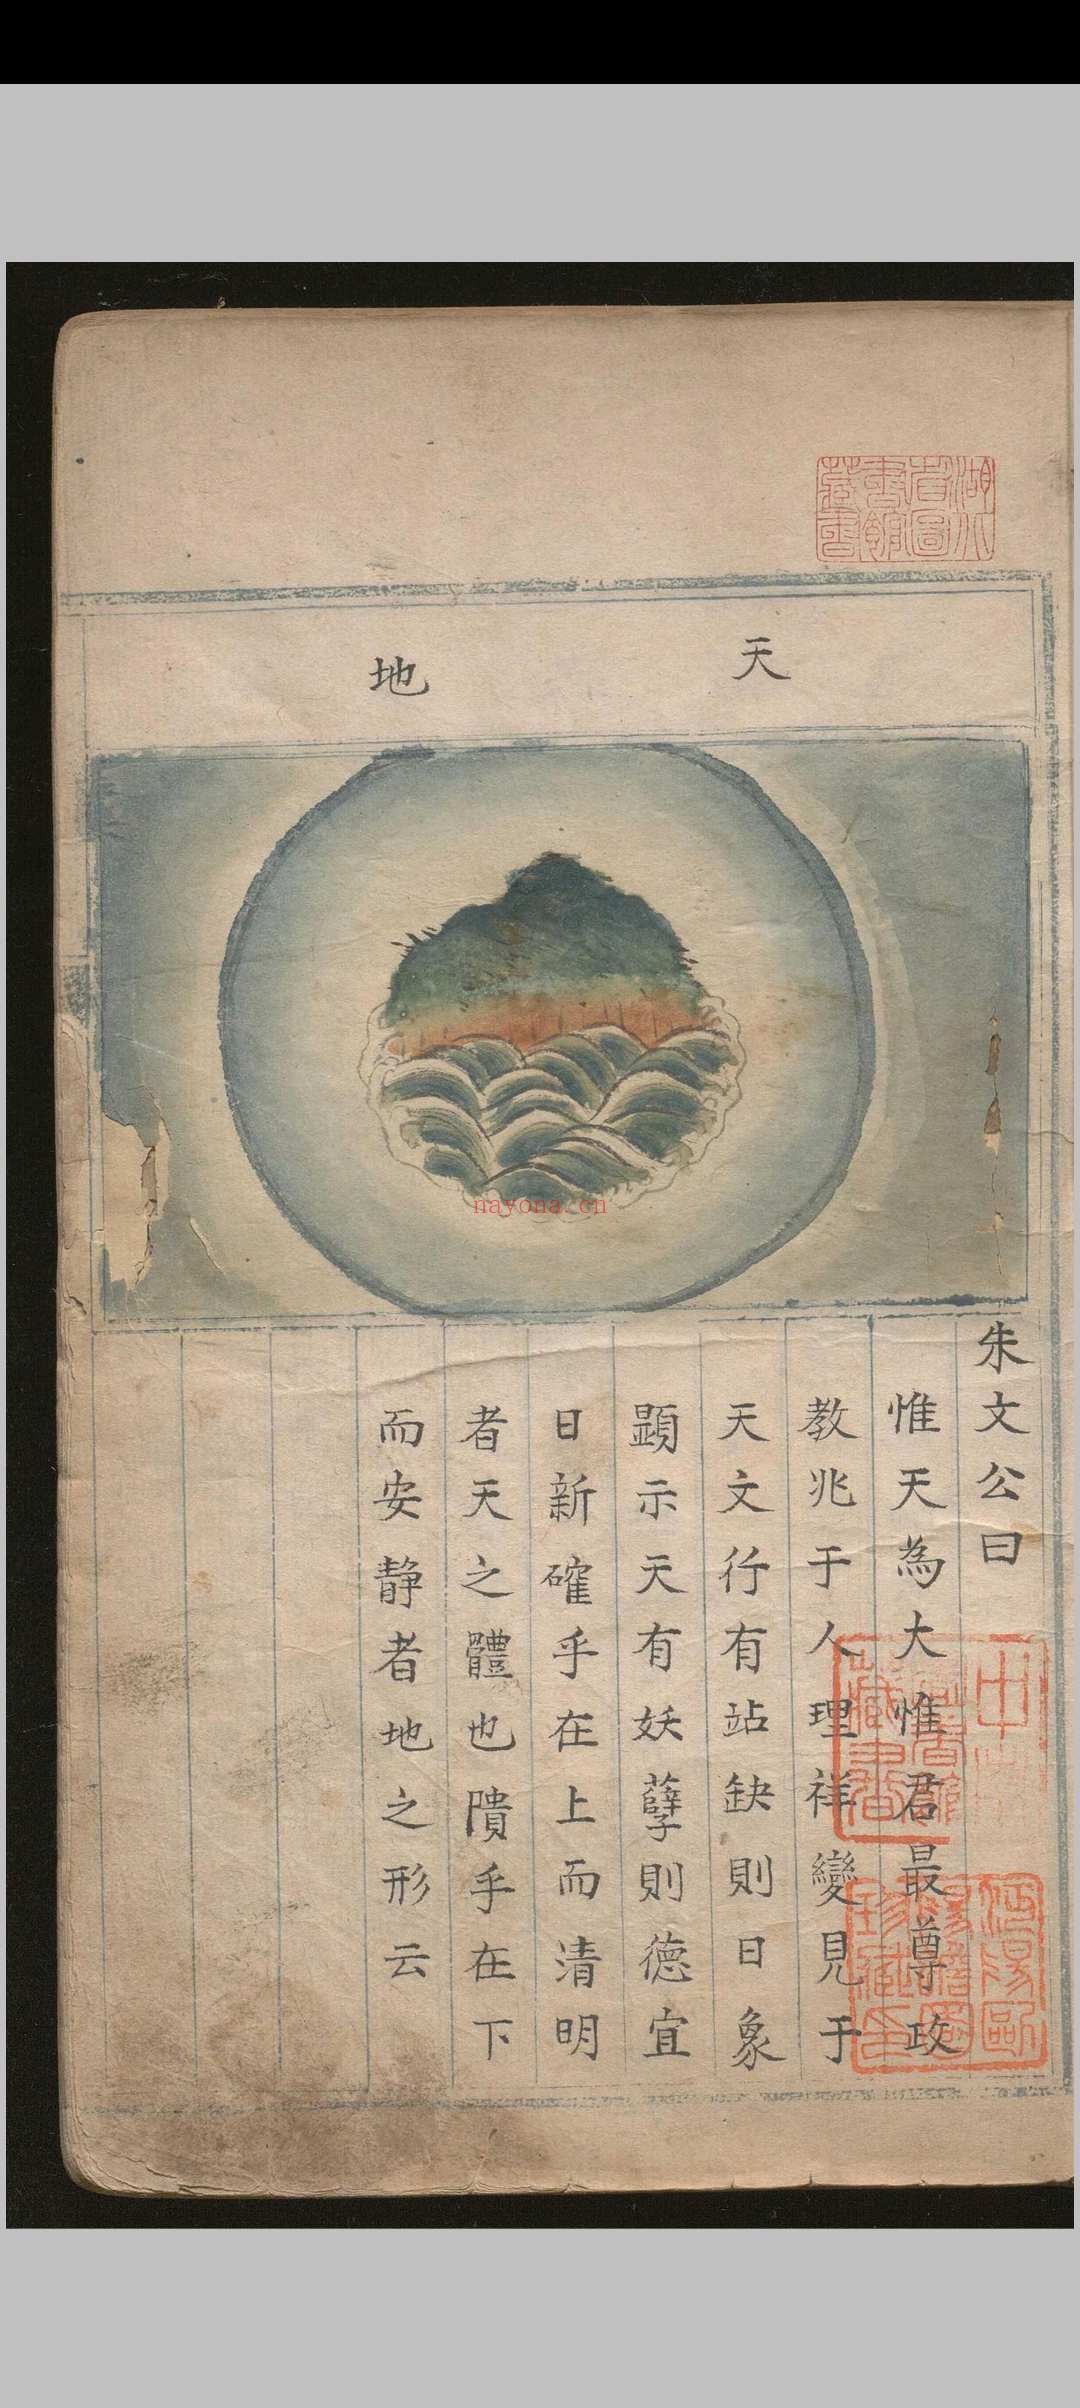 湖北省圖書館藏書
天地
朱文公曰
惟天為大惟君最尊政
教兆于人理祥變見于
天文行有站缺則日象
顕示天有妖孽則德宜
日新確乎在上而清明
者天之體也隤乎在下
而安静者地之形云
nayona.cn